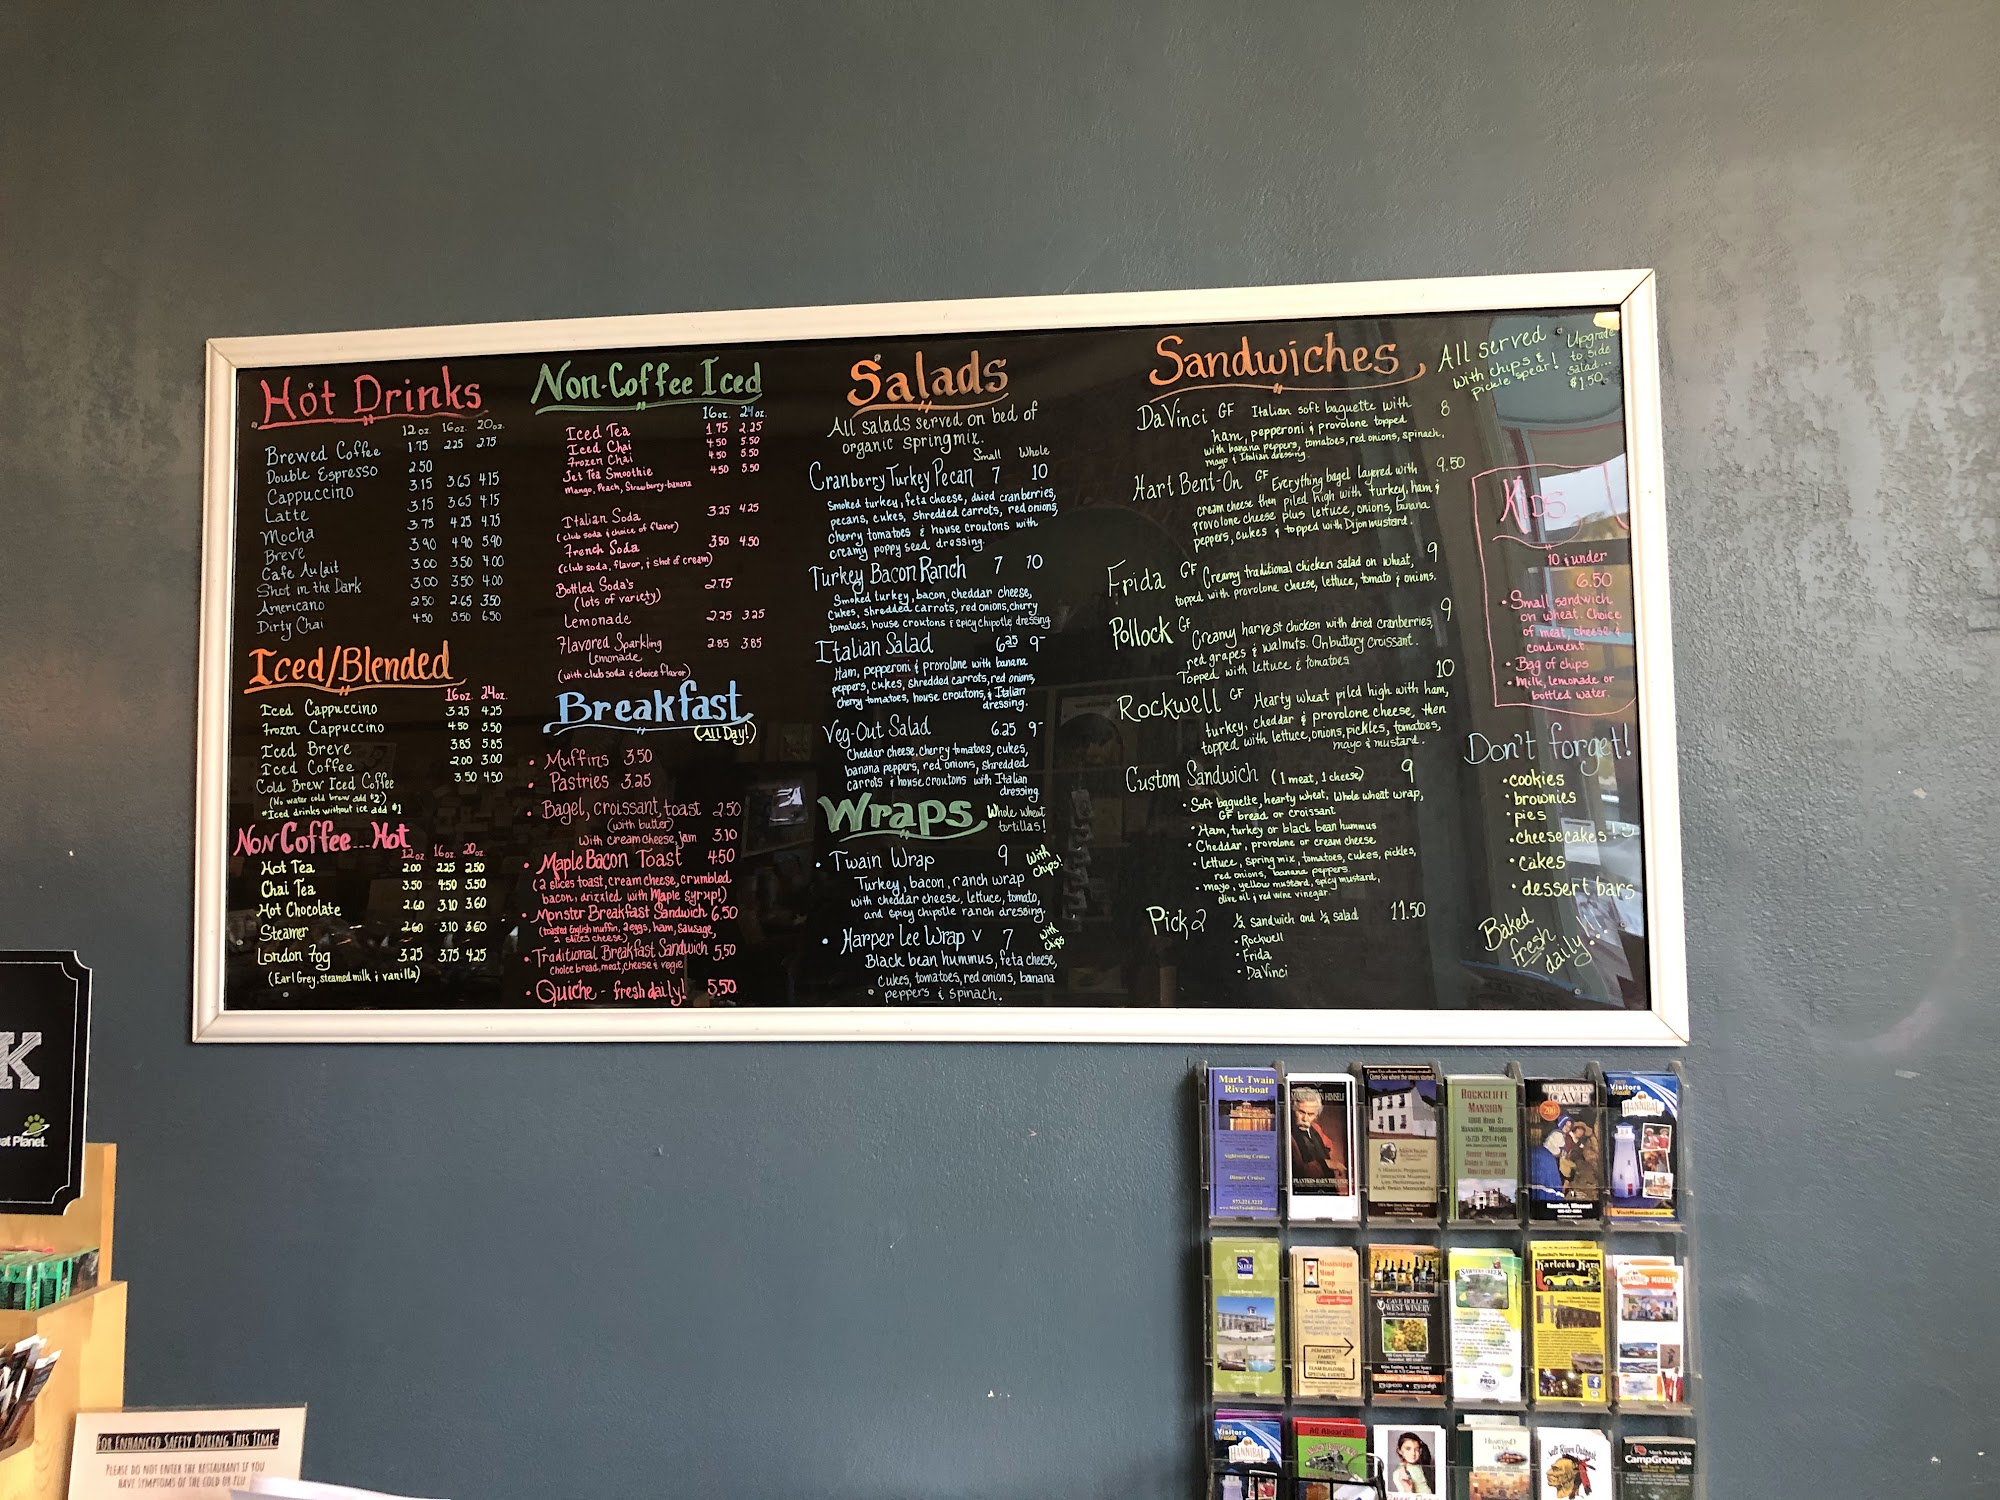 Hot Drinks
12 oz. 16 oz. 20 oz.
Brewed Coffee 1.75 2.25 2.75
Double Espresso 2.50
Cappuccino 3.15 3.65 4.15
Latte 3.15 3.65 4.15
Mocha 3.75 4.25 4.75
Breve 3.90 4.90 5.90
Cafe Au lait 3.00 3.50 4.00
Shot in the Dark 3.00 3.50 4.00
Americano 2.50 2.65 3.50
Dirty Chai 4.50 5.50 6.50
Iced/Blended
16 oz. 24 oz.
Iced Cappuccino 3.25 4.25
Frozen Cappuccino 4.50 5.50
Iced Breve 3.85 5.85
Iced Coffee 2.00 3.00
Cold Brew Iced Coffee 3.50 4.50
(No water cold brew add $2)
*Iced drinks without ice add $1
Non Coffee...Hot
12 oz 16 oz. 20 oz.
Hot Tea 2.00 2.25 2.50
Chai Tea 3.50 4.50 5.50
Hot Chocolate 2.60 3.10 3.60
Steamer 2.60 3.10 3.60
London Fog 3.25 3.75 4.25
(Earl Grey, steamed milk & vanilla)
Non-Coffee Iced
16 oz. 24 oz.
Iced Tea 1.75 2.25
Iced Chai 4.50 5.50
Frozen Chai 4.50 5.50
Jet Tea Smoothie 4.50 5.50
Mango, Peach, Strawberry-banana
Italian Soda 3.25 4.25
(club soda & choice of flavor)
French Soda 3.50 4.50
(club soda, flavor, & shot of cream)
Bottled Soda's 2.75
(lots of variety)
Lemonade 2.25 3.25
Flavored Sparkling 2.85 3.85
Lemonade
(with club soda & choice flavor)
Breakfast
(All Day!)
• Muffins 3.50
• Pastries 3.25
• Bagel, croissant, toast 2.50
(with butter)
With cream cheese, jam 3.10
• Maple Bacon Toast 4.50
(2 slices toast, cream cheese, crumbled
bacon, drizzled with Maple syrup!)
• Monster Breakfast Sandwich 6.50
(toasted English muffin, 2 eggs, ham, sausage,
2 slices cheese)
• Traditional Breakfast Sandwich 5.50
Choice bread, meat, cheese & vegie
• Quiche - fresh daily! 5.50
Salads
All salads served on bed of
organic springmix.
Small Whole
Cranberry Turkey Pecan 7 10
Smoked turkey, feta cheese, dried cranberries,
pecans, cukes, shredded carrots, red onions,
cherry tomatoes & house croutons with
creamy poppy seed dressing.
Turkey Bacon Ranch 7 10
Smoked turkey, bacon, cheddar cheese,
cukes, shredded carrots, red onions, cherry
tomatoes, house croutons & spicy chipotle dressing
Italian Salad 6.25 9-
Ham, pepperoni & provolone with banana
peppers, cukes, shredded carrots, red onions,
cherry tomatoes, house croutons, & Italian
dressing.
Veg-Out Salad 6.25 9-
Cheddar cheese, cherry tomatoes, cukes,
banana peppers, red onions, shredded
carrots & house croutons with Italian
dressing
Wraps Whole wheat
tortillas!
• Twain Wrap 9 With
chips!
Turkey, bacon, ranch wrap
with cheddar cheese, lettuce, tomato,
and spicy chipotle ranch dressing.
• Harper Lee Wrap V 7 with
chips
Black bean hummus, feta cheese,
cukes, tomatoes, red onions, banana
peppers & spinach.
Sandwiches
All served
with chips &
pickle spear!
Upgrade
to side
salad...
$1.50
DaVinci GF Italian soft baguette with 8
ham, pepperoni & provolone topped
with banana peppers, tomatoes, red onions, spinach,
mayo & Italian dressing.
Hart Bent-On GF Everything bagel layered with 9.50
cream cheese then piled high with turkey, ham &
provolone cheese plus lettuce, onions, banana
peppers, cukes & topped with Dijon mustard.
Frida GF Creamy traditional chicken salad on wheat, 9
topped with provolone cheese, lettuce, tomato & onions.
Pollock GF Creamy harvest chicken with dried cranberries, 9
red grapes & walnuts. On buttery croissant.
Topped with lettuce & tomatoes
Rockwell GF Hearty wheat piled high with ham, 10
turkey, cheddar & provolone cheese, then
topped with lettuce, onions, pickles, tomatoes,
mayo & mustard.
Custom Sandwich (1 meat, 1 cheese) 9
• Soft baguette, hearty wheat, whole wheat wrap,
GF bread or croissant
• Ham, turkey or black bean hummus
• Cheddar, provolone or cream cheese
• Lettuce, spring mix, tomatoes, cukes, pickles,
red onions, banana peppers
• mayo, yellow mustard, spicy mustard,
olive oil & red wine vinegar.
Pick 2 1/2 sandwich and 1/2 salad 11.50
• Rockwell
• Frida
• DaVinci
Kids
10 & under
6.50
• Small sandwich
on wheat. Choice
of meat, cheese &
condiment
• Bag of chips
• Milk, lemonade or
bottled water.
Don't forget!
• cookies
• brownies
• pies
• cheesecakes!
• cakes
• dessert bars
Baked
fresh
daily!!!
K
at Planet
FOR ENHANCED SAFETY DURING THIS TIME:
PLEASE DO NOT ENTER THE RESTAURANT IF YOU
HAVE SYMPTOMS OF THE COLD OR FLU
Mark Twain
Riverboat
Sightseeing Cruises
Dinner Cruises
573.221.3222
MARK TWAIN HIMSELF
PLANTERS BARN THEATER
Come See where the stories started!
ROCKCLIFFE
MANSION
MARK TWAIN
CAVE
Hannibal, Missouri
Visitors
Guide
HANNIBAL
VisitHannibal.com
SLEEP
Mississippi
Mud
Trap
Escape Your Mind
PERFECT FOR
FAMILY
FRIENDS
TEAM BUILDING
SPECIAL EVENTS
CAVE HOLLOW
WEST WINERY
SAWYER'S CREEK
PROS
Hannibal's Newest Attraction!
Karlocks Kars
MURALS
Visitors
Guide
HANNIBAL
All Aboard!!!
Salt River Outpost
Mark Twain Cave
CampGrounds